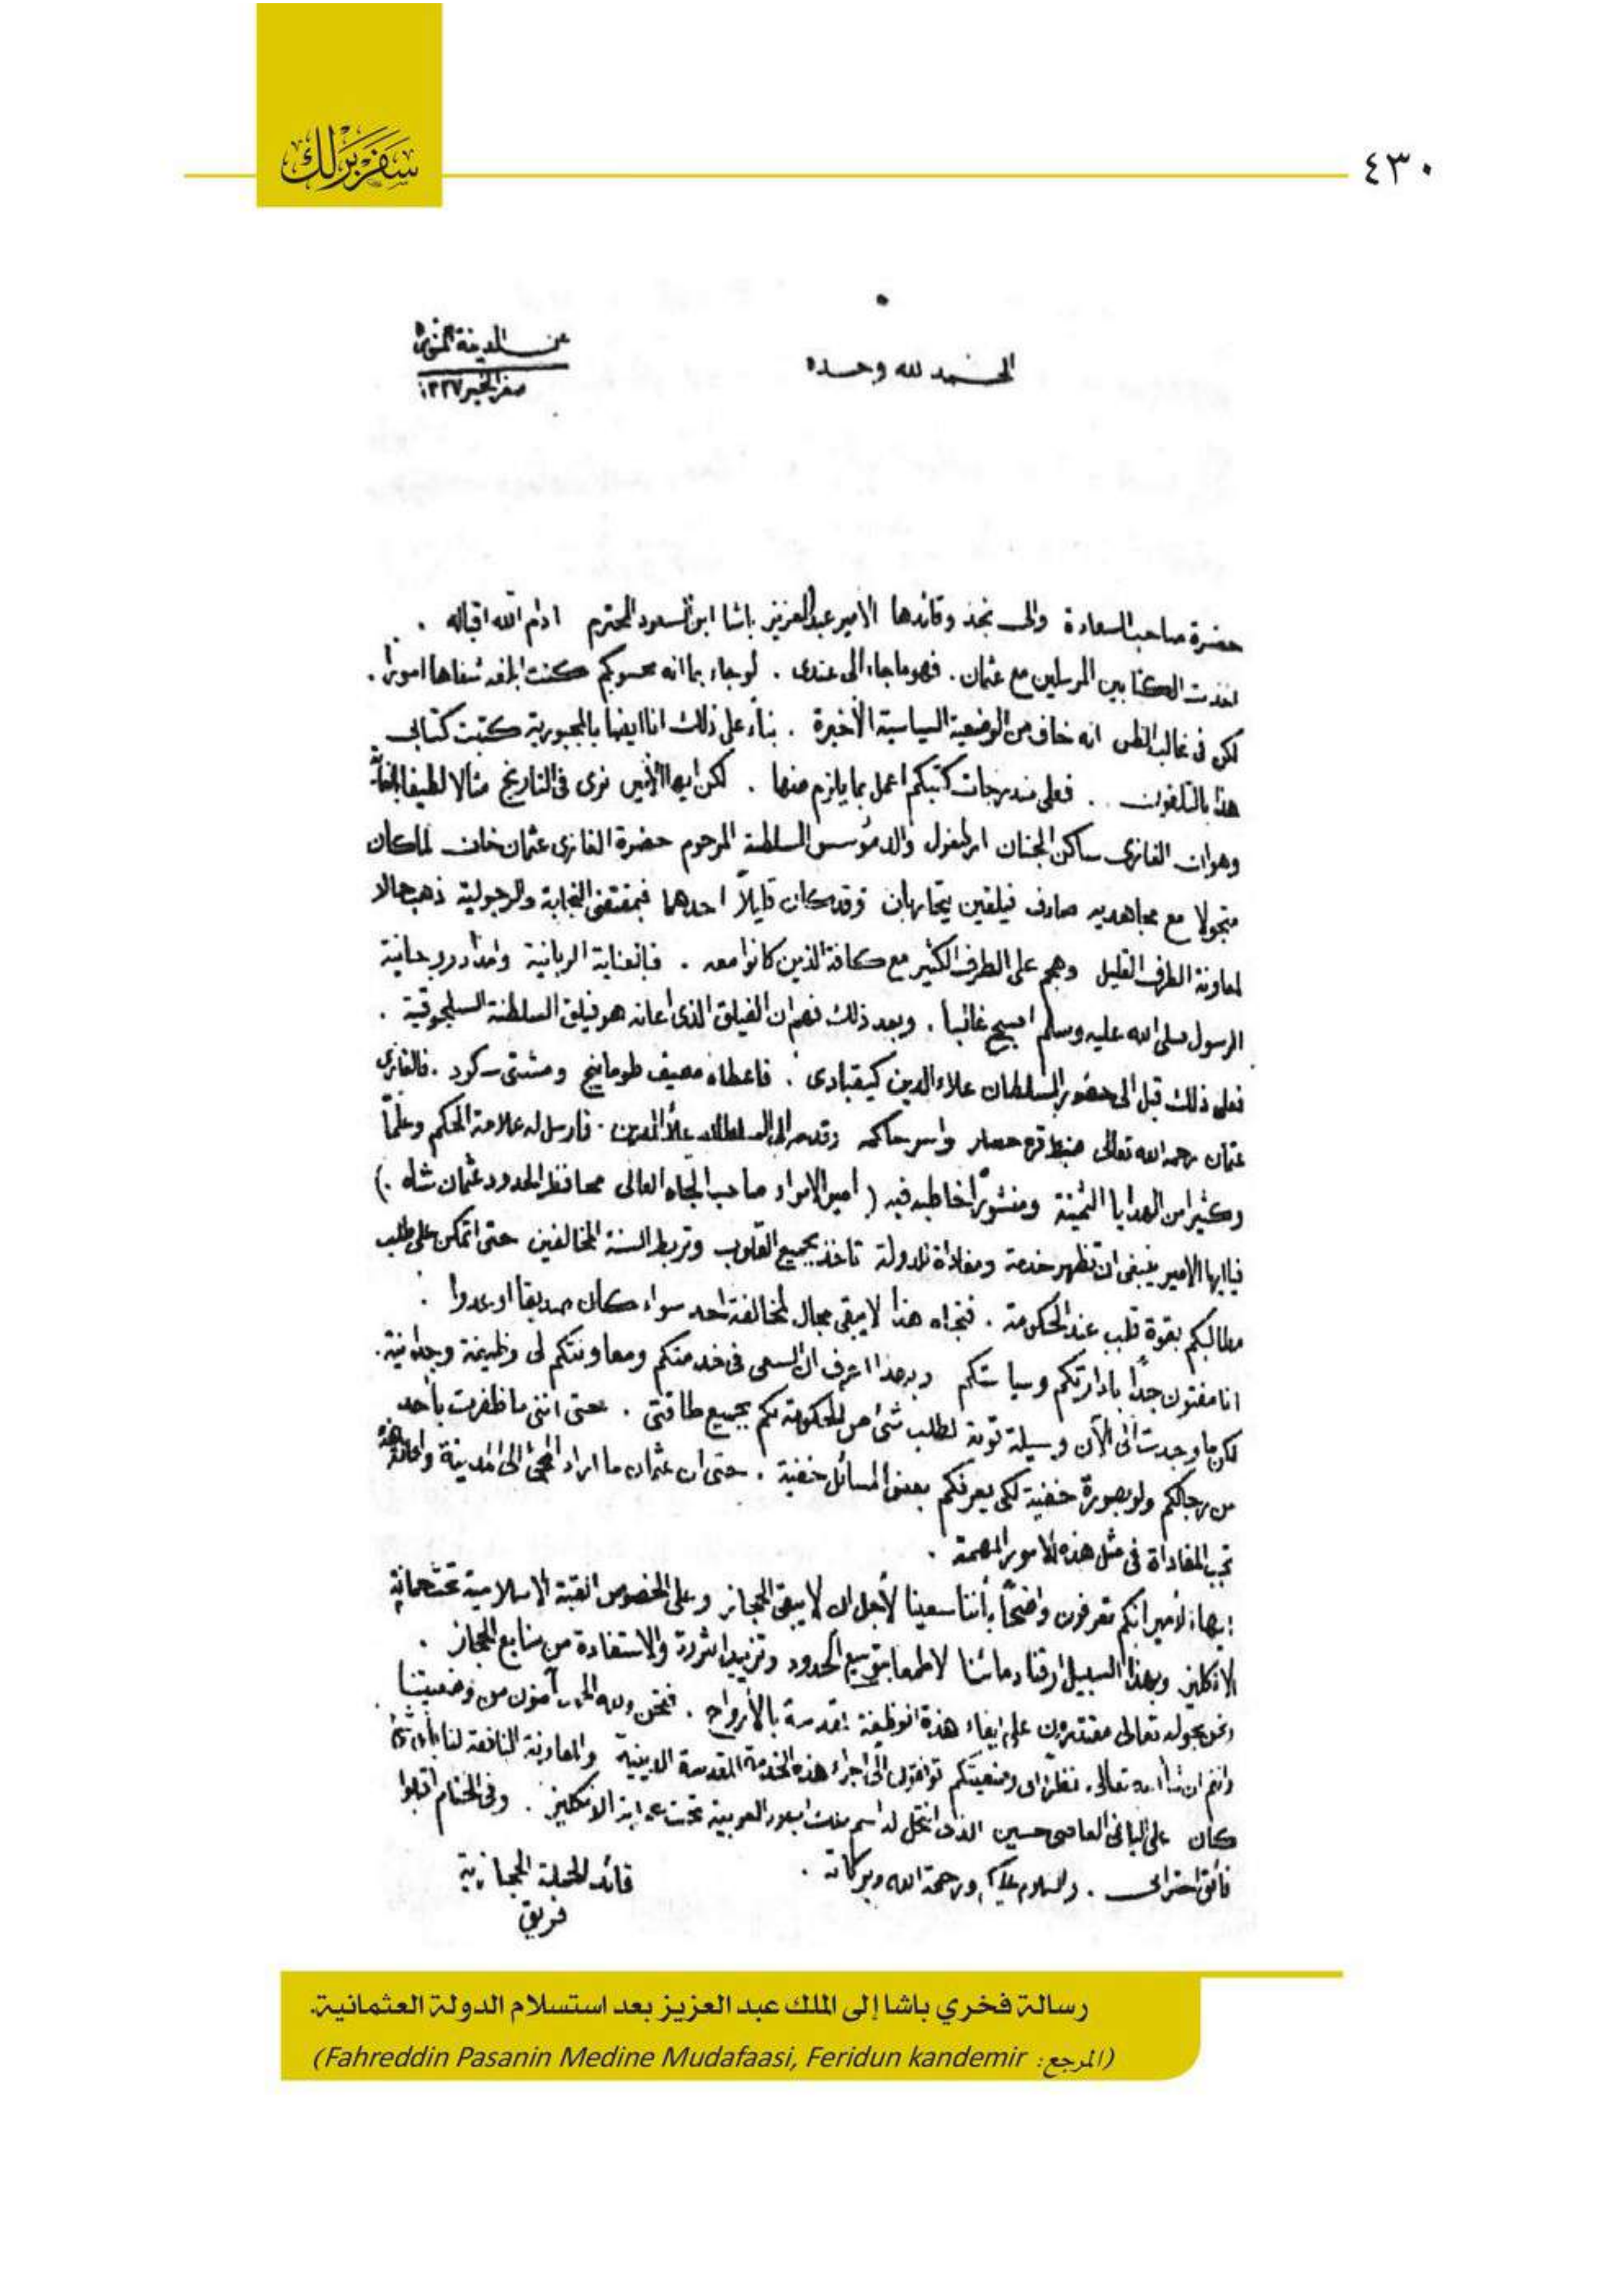 ٤٣٠
سفر برلك
الحمد لله وحده
عن المدينة المنورة
صفر الخير ١٣٣٧
حضرة صاحب السعادة والى نجد وقائدها الامير عبدالعزيز باشا ابن السعود المحترم ادام الله اقباله .
اخذت الكتابين المرسلين مع عثمان . فهو ماجاء الى عندى . لو جاء بما انه محسوبكم كنت ابلغه شفاها امورا .
لكن فى غالب الظن انه خاف من الوضعية السياسية الأخيرة . بناء على ذلك انا ايضا بالمجبورية كتبت كتابى
هذا بالتلفون . فعلى مندرجات كتبكم اعمل بما يلزم منها . لكن ايها الأمير نرى فى التاريخ مثالا لطيفا
وهو ان الغازى ساكن الجنان ارطغرل والد مؤسس السلطنة المرحوم حضرة الغازى عثمان خان لما كان
متجولا مع مجاهديه صادف فيلقين يتحاربان وقد كان قليلا احدهما فبمقتضى النجابة والرجولية ذهب حالا
لمعاونة الطرف القليل وهجم على الطرف الكثير مع كافة الذين كانوا معه . فبالعناية الربانية وامداد روحانية
الرسول صلى الله عليه وسلم اصبح غالبا . وبعد ذلك فهم ان الفيلق الذى اعانه هو فيلق السلطنة السلجوقية .
فعلى ذلك قبل الى حضور السلطان علاء الدين كيقبادى . فاعطاه مصيف طومانيج ومشتى سكود . فالغازى
عثمان رحمه الله تعالى ضبط قره حصار واسر حاكمه وقدمه الى السلطان علاء الدين . فارسل له علامة الحكم وعلما
وكثيرا من الهدايا الثمينة ومنشورا خاطبه فيه ( امير الامراء صاحب الجاه العالى محافظ الحدود عثمان شاه .)
فيا ايها الامير ينبغى ان تظهر خدمة ومفاداة للدولة تاخذ بجميع القلوب وتربط السنة المخالفين حتى اتمكن على طلب
مطالبكم بقوة قلب عند الحكومة . فتجاه هذا لا يبقى مجال لمخالفة احد سواء كان صديقا او عدوا .
انا مفتون جدا بادارتكم وسياستكم وبهذا اعرف ان السعى فى خدمتكم ومعاونتكم لى وظيفة وجدانية .
لكن ما وجدت الى الآن وسيلة قوية لطلب شئ من الحكومة لكم بجميع طاقتى . حتى اننى ما ظفرت بأحد
من رجالكم ولو بصورة خفية لكى يعرفكم بعض المسائل خفية . حتى ان عثمان ما اراد المجئ الى المدينة
تجب المفاداة فى مثل هذه الامور المهمة .
ايها الامير انكم تعرفون واضحا بأننا سعينا لأجل ان لا يبقى الحجاز وعلى الخصوص القبة الاسلامية تحت حماية
الانكليز وبهذا السبيل ارقنا دمائنا لا طمعا بتوسيع الحدود وتزييد الثروة والاستفادة من منابع الحجاز .
ونحن بحوله تعالى مقتدرون على ايفاء هذه الوظيفة المقدسة بالأرواح . فنحن ولله الحمد آمنون من وضعيتنا .
وانتم ان شاء الله تعالى نظرا الى وضعيتكم توافقون الى اجراء هذه الخدمة المقدسة الدينية والمعاونة النافعة لنا بأى شئ
كان على الباغى العاصى حسين الذى انتحل له اسم ملك البلاد العربية تحت حماية الانكليز . وفى الختام اقبلوا
فائق احترامى . والسلام عليكم ورحمة الله وبركاته .
قائد الحملة الحجازية
فريق
رسالة فخري باشا إلى الملك عبد العزيز بعد استسلام الدولة العثمانية.
(المرجع: Fahreddin Pasanin Medine Mudafaasi, Feridun kandemir)